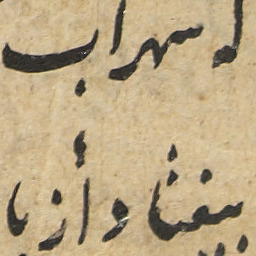 سهراب
بیفتاد از پا